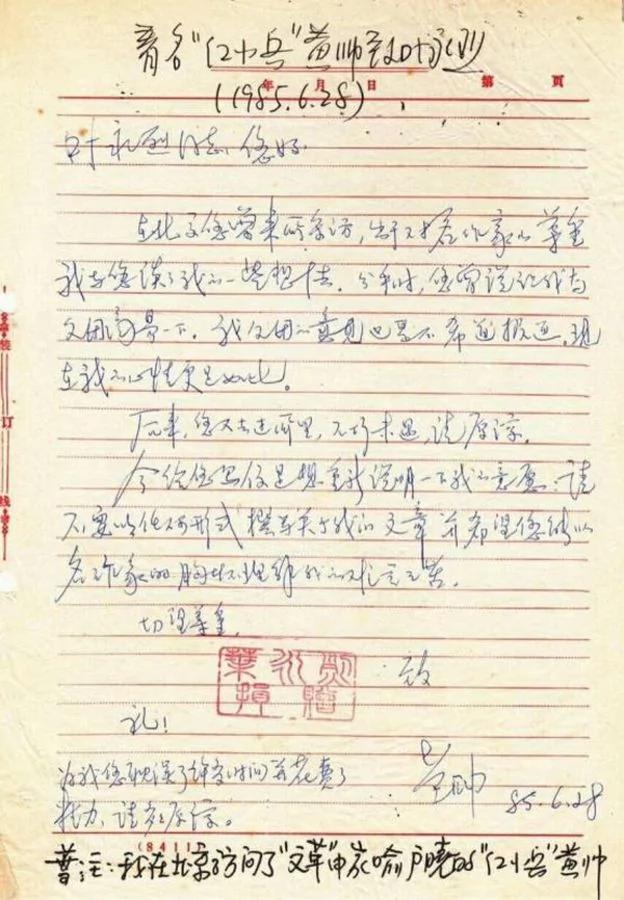 著名"红小兵"黄帅致叶永烈
年 月 日 第 頁
(1985.6.28)
叶永烈同志：您好
在北京您曾来所采访，出于对名作家的尊重
我与您谈了我的一些想法。分手时，您曾说让我与
父母商量一下。我父母的意见也是不希望报道，现
在我的心情更是如此。
后来，您又去过所里，不巧未遇，请原谅。
今给您写信是想重新说明一下我的意愿：请
不要以任何形式撰写关于我的文章并希望您能以
名作家的胸怀理解我的
切望尊重。
叶永烈
捐赠
致
礼！
黄帅
为我您耽误了许多时间并花费了
85.6.28
精力，请多原谅。
(8411)
普注：我在北京访问了"文革"中家喻户晓的"红小兵"黄帅
装
订
线